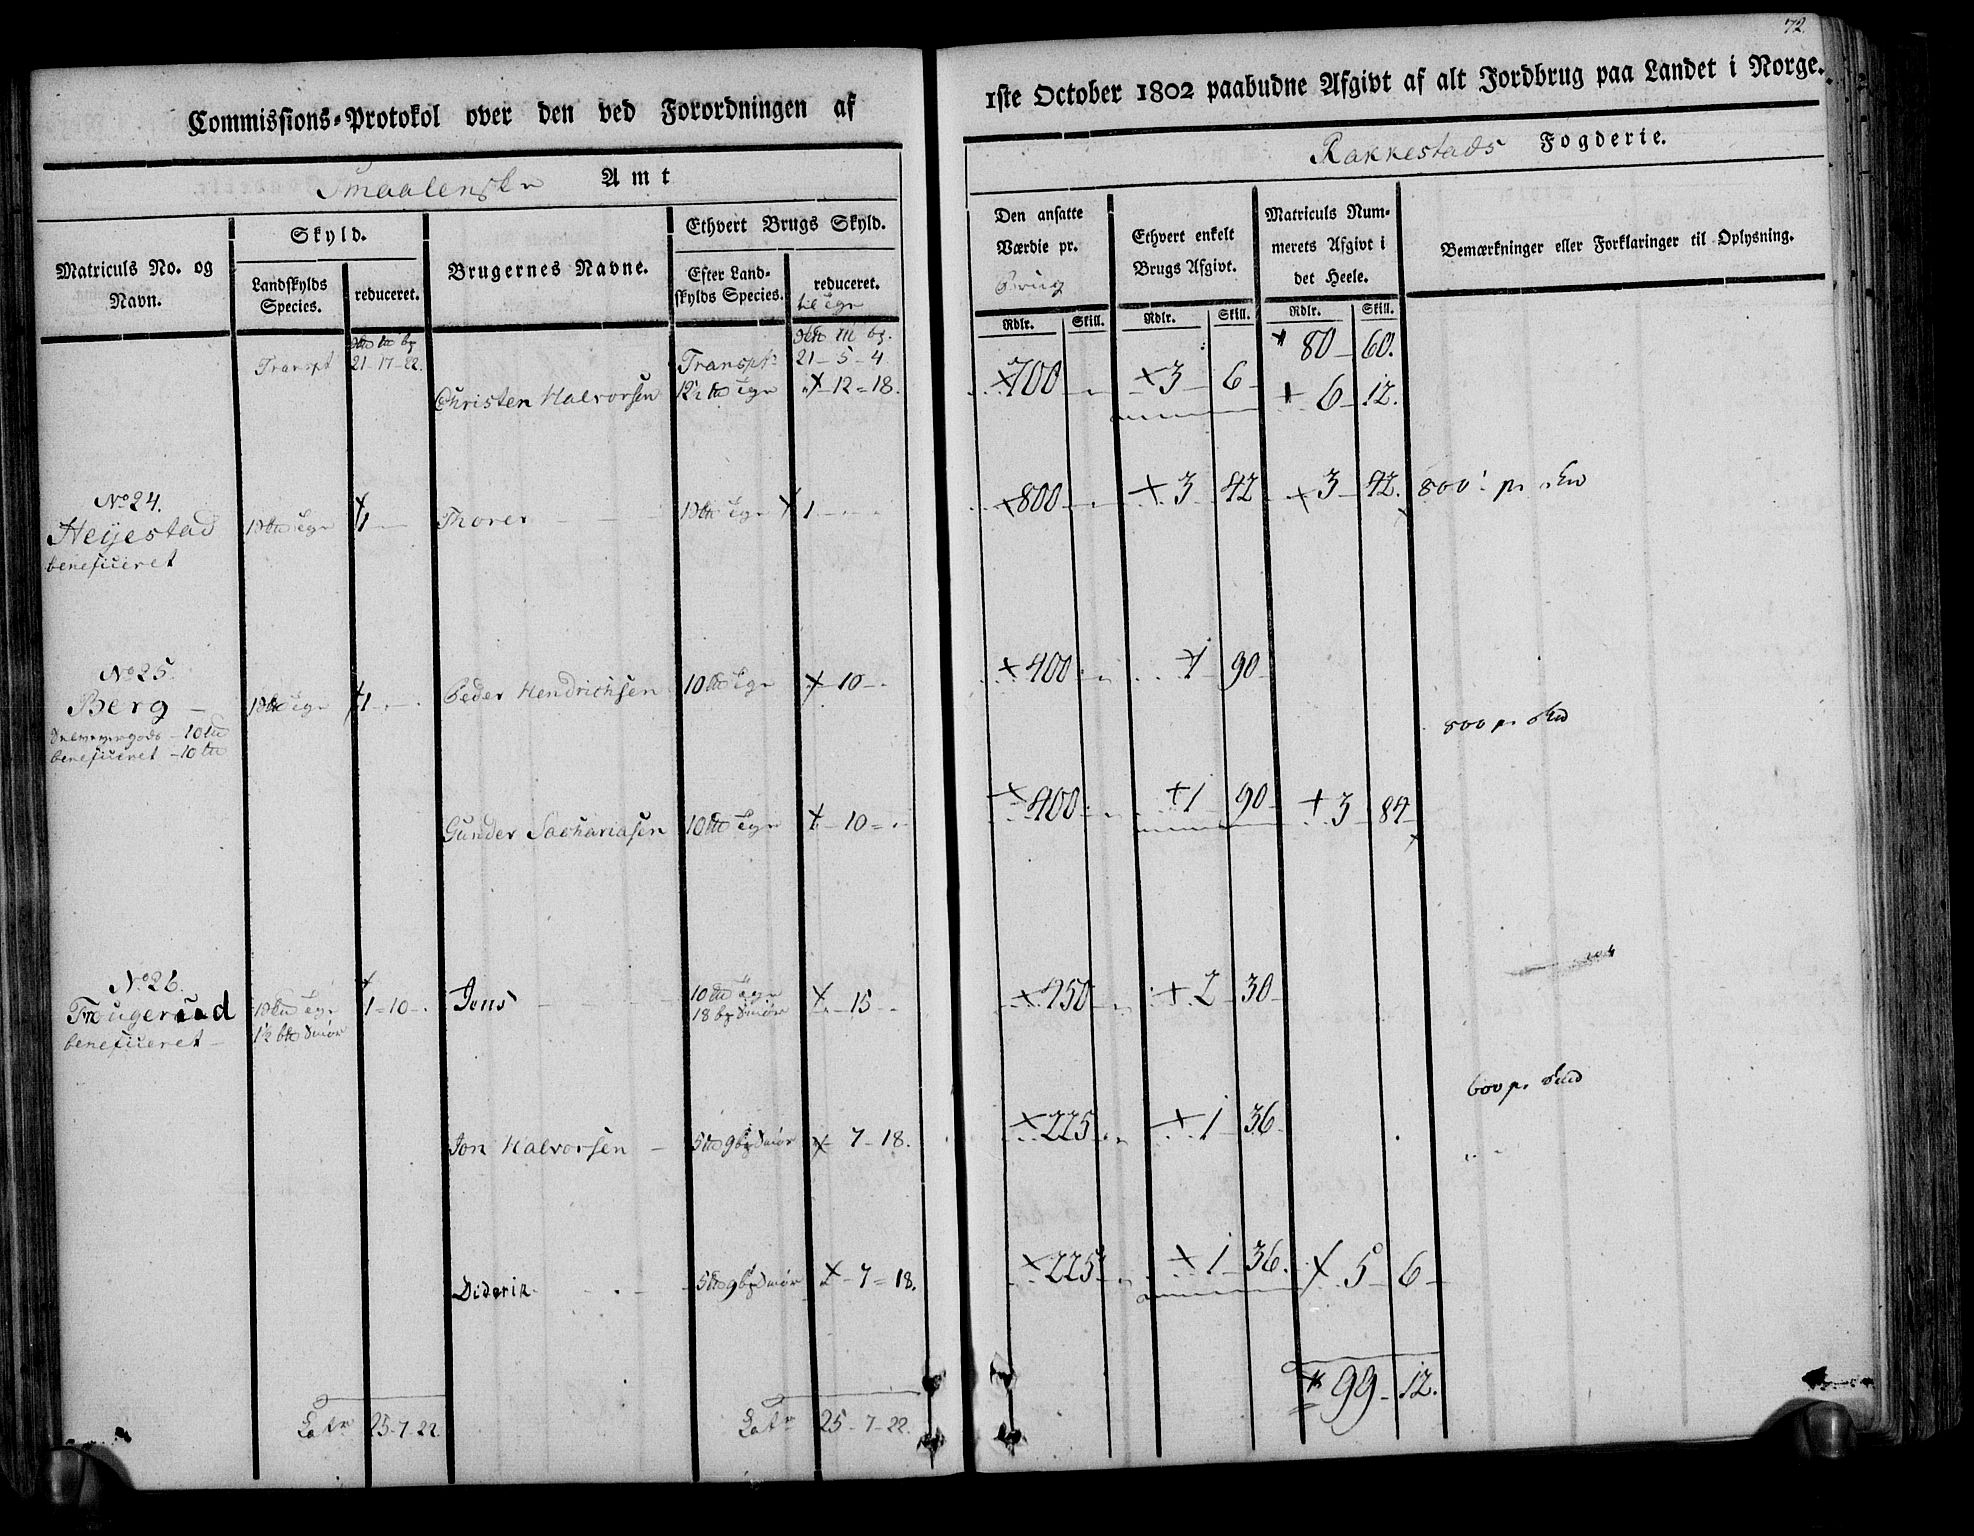 72.
Commissions-Protokol over den ved Forordningen af
1ste October 1802 paabudne Afgivt af alt Jordbrug paa Landet i Norge.
Smaalenske Amt
Rakkestads Fogderie.
Matriculs No. og Navn.
Skyld.
Landskylds Species.
reduceret.
Brugernes Navne.
Ethvert Brugs Skyld.
Efter Landskylds Species.
reduceret.
til Tgn
Den ansatte Værdie pr.
Brug
Ethvert enkelt Brugs Afgivt.
Matriculs Nummerets Afgivt i det Heele.
Bemærkninger eller Forklaringer til Oplysning.
Rdlr. Skill. Rdlr. Skill. Rdlr. Skill.
Transpt 21-17-22. Transpt 21-5-4 80-60.
Christen Halvorsen 12½ Tgn 12=18. 700 3 6 6 12.
No 24.
Heÿestad Tgn 1 Thorer Tgn 1 800 3 42 3 42. 800 pr
beneficeret
No 25.
Berg Tgn 1 Peder Hendrichsen 10 Tgn 10 400 1 90
10
beneficeret 10
800 pr
Gunder Sachariasen 10 Tgn 10 400 1 90 3 84
No 26.
Trougerud Tgn 1=10 Jens 10 Tgn 15 450 2 30
18 Smør
beneficeret 1½ Smør
600 pr
Jon Halvorsen 5 9 Smør 7-18. 225 1 36
Diderik 5 9 Smør 7=18. 225 1 36. 5 6
99-12.
Latr 25-7-22 Latr 25-7-22.